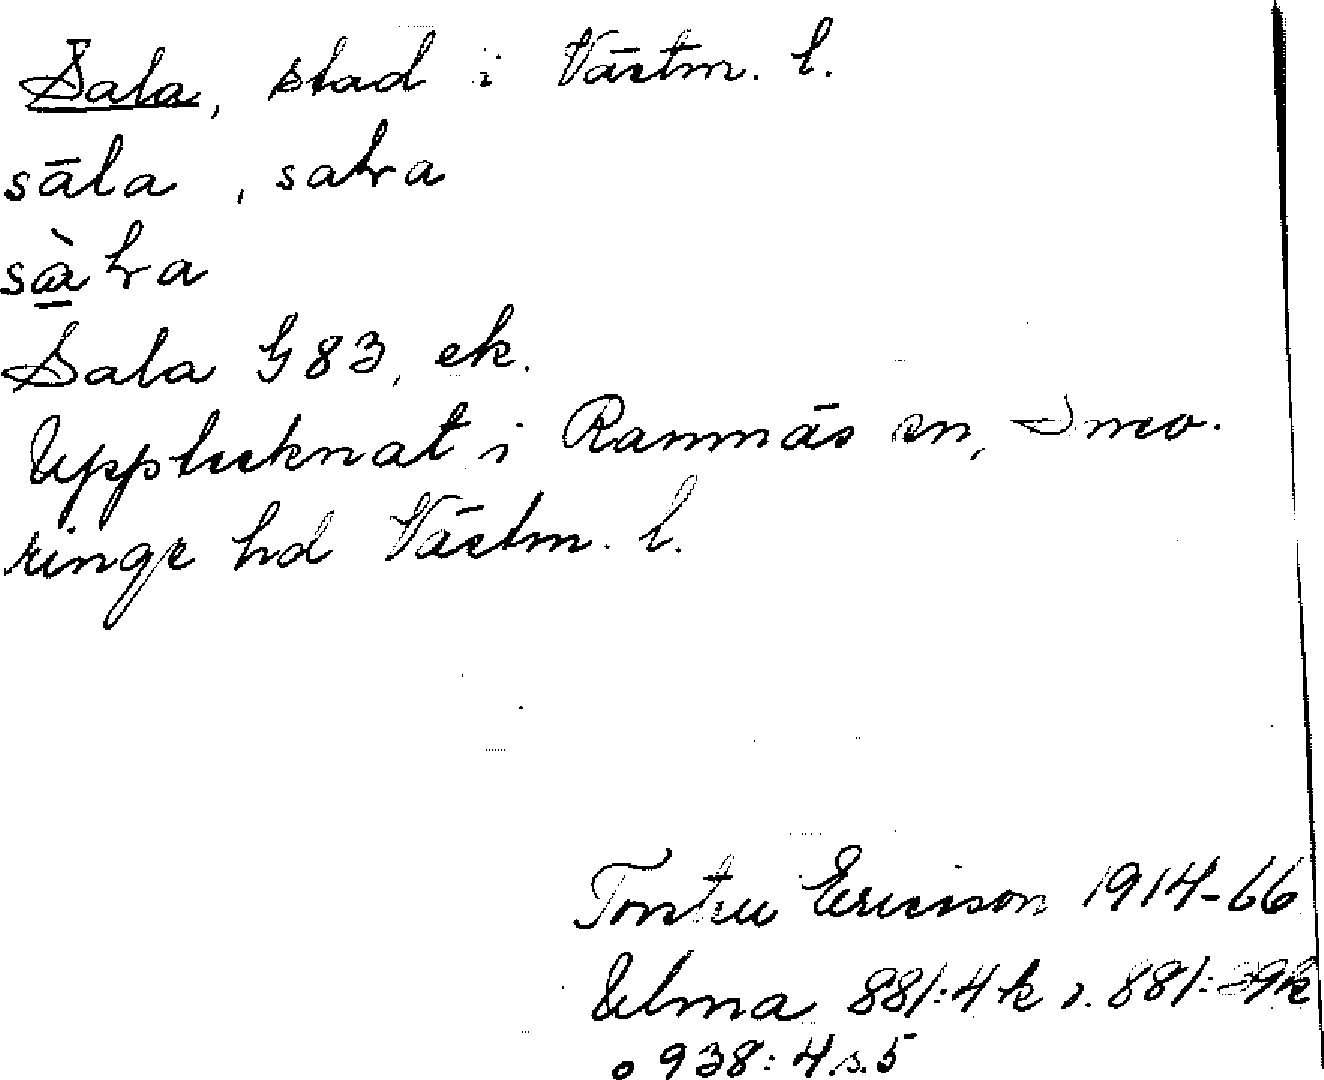 Sala, stad i Västm. l.
sāla, salva
sàlva
Sala G 83, ek.
Upptecknat i Ramnäs sn, Snev-
ringe hd Västm. l.
Torsten Ericsson 1914-66
Ulma 881:4 k o. 881:39k
o 938:4 s. 5